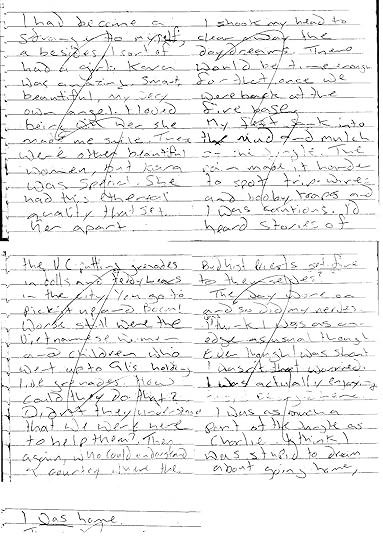 I had become a
stranger to myself,
& besides, I sort of
had a girl. Kara
was amazing. Smart,
beautiful, my very
own angel. I loved
being with her she
made me smile. There
were other beautiful
women, but Kara
was special. She
had this ethereal
quality that set
her apart.
I shook my head to
clear away the
daydreams. There
would be time enough
for that once we
were back at the
fire base.
My feet sank into
the mud and mulch
of the jungle. The
rain made it harder
to spot trip wires
and booby traps and
I was cautious. I'd
heard stories of
the VC putting grenades
in dolls and teddy bears
in the city. You go to
pick it up and Boom!
Worse still were the
Vietnamese women
and children who
went up to GI's holding
live grenades. How
could they do that?
Didn't they understand
that we were here
to help them? Then
again, who could understand
a country where the
Buddhist priests set fire
to themselves?
The day wore on
and so did my nerves.
I think I was as on
edge as usual though
Even though I was short
I wasn't that worried.
I was actually enjoying
I was as much a
part of the jungle as
Charlie. I think I
was stupid to dream
about going home,
I was home.